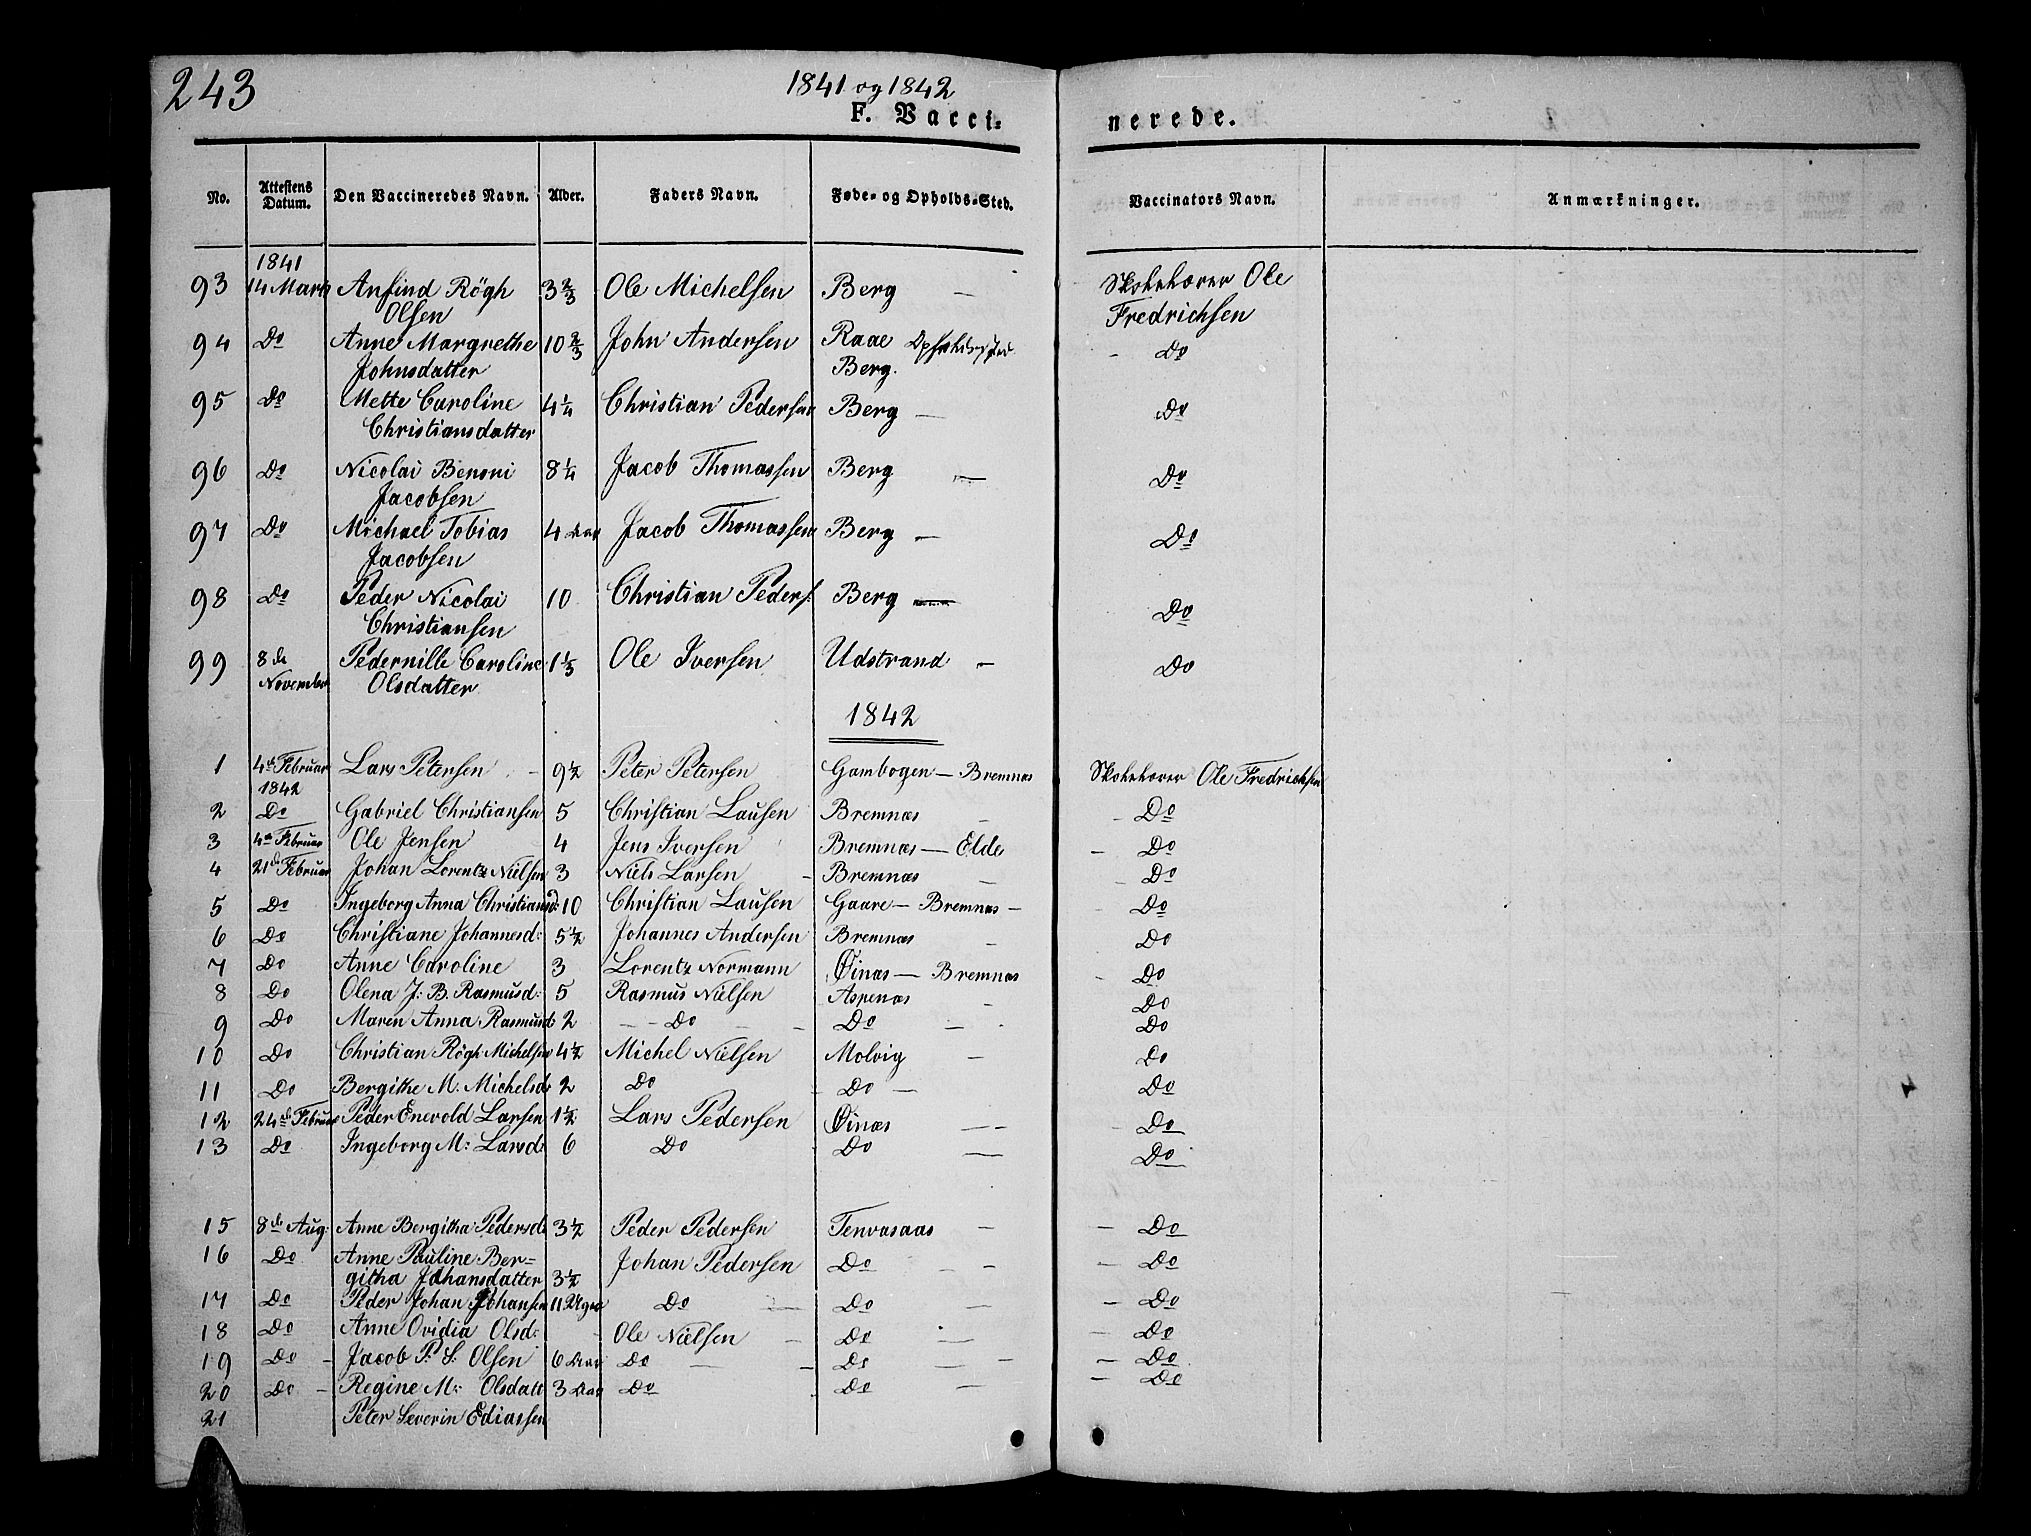 243
1841 og 1842
F. Vacci-
nerede.
No. Attestens Datum. Den Vaccineredes Navn. Alder. Faders Navn. Føde- og Opholds-Sted. Vaccinators Navn. Anmærkninger.
1841
93 14 Marts Anfind Rögh 3 2/3 Ole Michelsen Berg — Skolelærer Ole
Olsen Fredrichsen
94 Do Anne Margrethe 10 2/3 John Andersen Raae Opholdssted - Do
Johnsdatter Berg.
95 Do Mette Caroline 4 1/4 Christian Pedersen Berg — Do
Christiansdatter
96 Do Nicolai Benoni 8 1/4 Jacob Thomassen Berg — Do
Jacobsen
97 Do Michael Tobias 4 Aar Jacob Thomassen Berg — Do
Jacobsen
98 Do Peder Nicolai 10 Christian Peders. Berg — Do
Christiansen
99 8de Pedernille Caroline 1 1/3 Ole Iversen Udstrand — Do
November Olsdatter
1842
1 4de Februar Lars Petersen 9 1/2 Peter Petersen Gambogen — Bremnæs Skolelærer Ole Fredrichsen
1842
2 Do Gabriel Christiansen 5 Christian Lausen Bremnæs - Do
3 4de Februar Ole Jensen 4 Jens Iversen Bremnæs — Elde - Do
4 21de Februar Johan Lorentz Nielsen 3 Niels Larsen - Bremnæs - Do
5 Do Ingeborg Anna Christiansd: 10 Christian Lausen Gaare — Bremnæs — - Do
6 Do Christiane Johannesd: 5 1/2 Johannes Andersen Bremnæs - Do
7 Do Anne Caroline 3 Lorentz Normann Øinæs — Bremnæs - Do
8 Do Olena J: B. Rasmusd: 5 Rasmus Nielsen Aspenæs - Do
9 Do Maren Anna Rasmusd: 2 - - Do - - Do — Do
10 Do Christian Rögh Michelsen 4 1/2 Michel Nielsen Molvig — Do
11 Do Bergithe M: Michelsd: 2 Do Do — Do
12 24de Februar Peder Enevold Larsen 1 1/2 Lars Pedersen Øinæs — - Do
13 Do Ingeborg M: Larsd: 6 Do Do — Do
15 8de Aug: Anne Bergitha Pedersd: 3 1/2 Peder Pedersen Tenvasaas — — Do
16 Do Anne Pauline Ber- Johan Pedersen Do - - — Do
githa Johansdatter 3 1/2
17 Do Peder Johan Johansen 11 Uger Do — Do — — Do
18 Do Anne Ovidia Olsd: - Ole Nielsen - Do — — Do
19 Do - Jacob P: S: Olsen 6 Aar Do — - Do — - — Do
20 Do - Regine M: Olsdatt 3 Aar Do Do — — Do
21 Peter Severin Ediassen